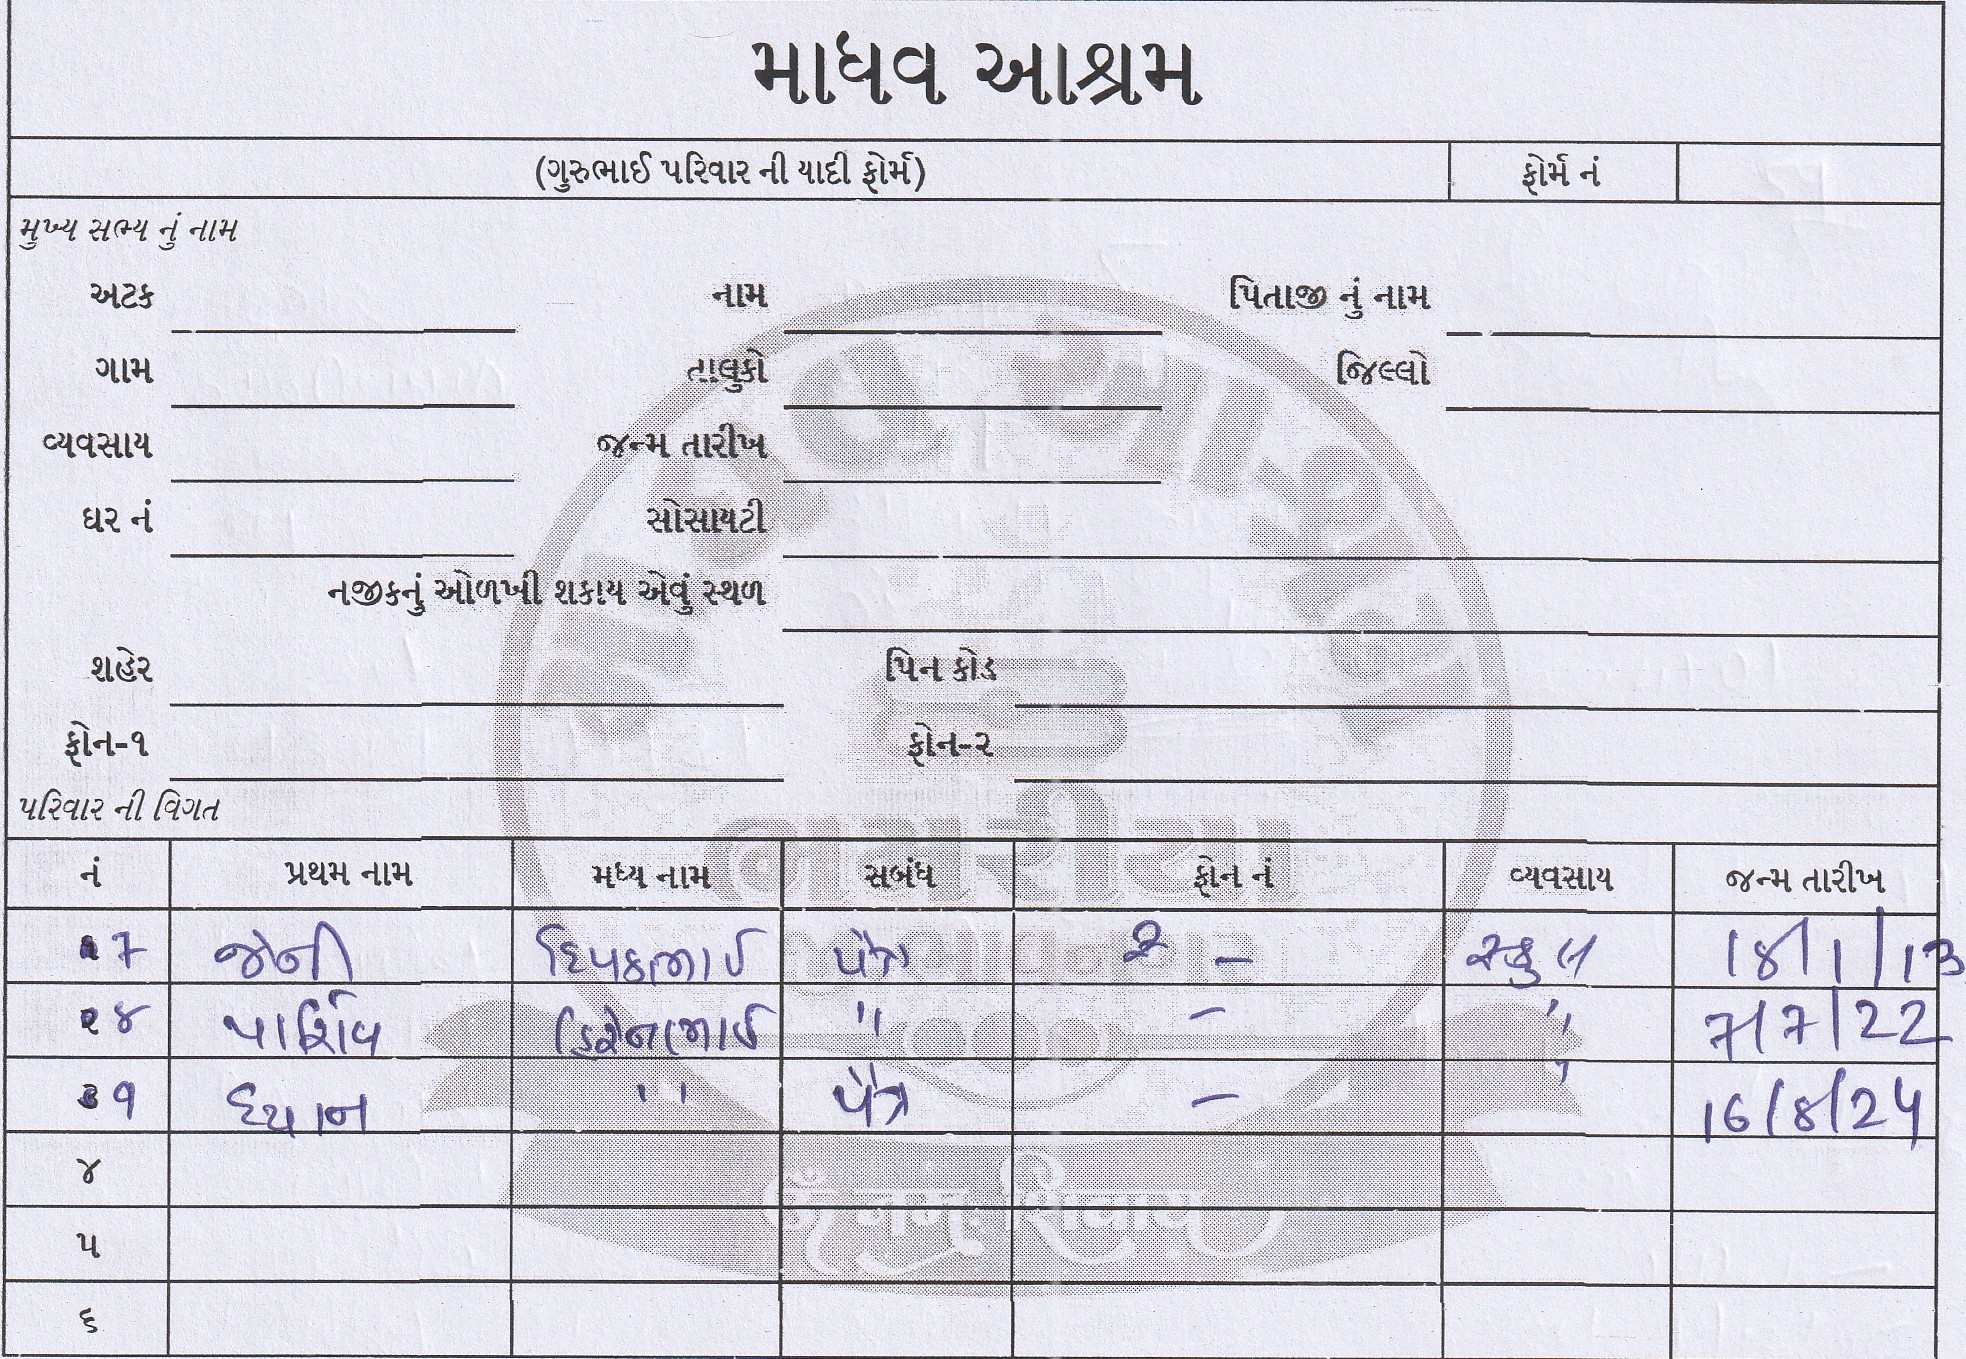 માધવ આશ્રમ
(ગુરુભાઈ પરિવાર ની યાદી ફોર્મ) ફોર્મ નં
મુખ્ય સભ્ય નું નામ
અટક નામ પિતાજી નું નામ
ગામ તાલુકો જિલ્લો
વ્યવસાય જન્મ તારીખ
ઘર નં સોસાયટી
નજીકનું ઓળખી શકાય એવું સ્થળ
શહેર પિન કોડ
ફોન-૧ ફોન-૨
પરિવાર ની વિગત
નં પ્રથમ નામ મધ્ય નામ સબંધ ફોન નં વ્યવસાય જન્મ તારીખ
૭ જેની દિપકભાઈ પૌત્ર - સ્કુલ 18/1/13
૮ પાર્શિવ " - " 7/7/22
૯ ધ્યાન '' પૌત્ર - " 16/8/24
૪
૫
૬
ॐ नमः शिवाय